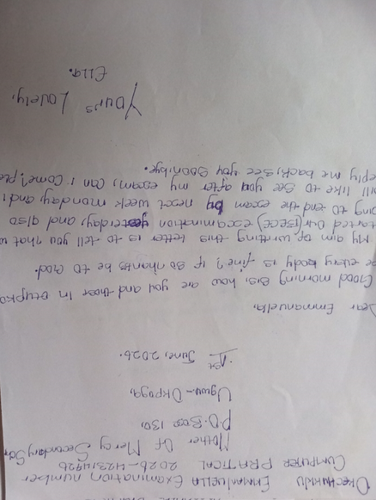 OKECHUKWU EMMANUELLA Examination number
COMPUTER PRATICAL 2026-42314926
Mother Of Mercy Secondary
P.O.Box 130,
Ugwu-
1st June, 2026.
Dear Emmanuella,
Good morning, how are you and those in
every body is fine? if so thanks be to God.
My aim of writing this letter is to tell you that
our (BECE) examination yesterday, and also
to end the exam by next week monday and i
like to see you after my exam, can i come?
reply me back, see you soon, bye.
Yours Lovely,
Ella.